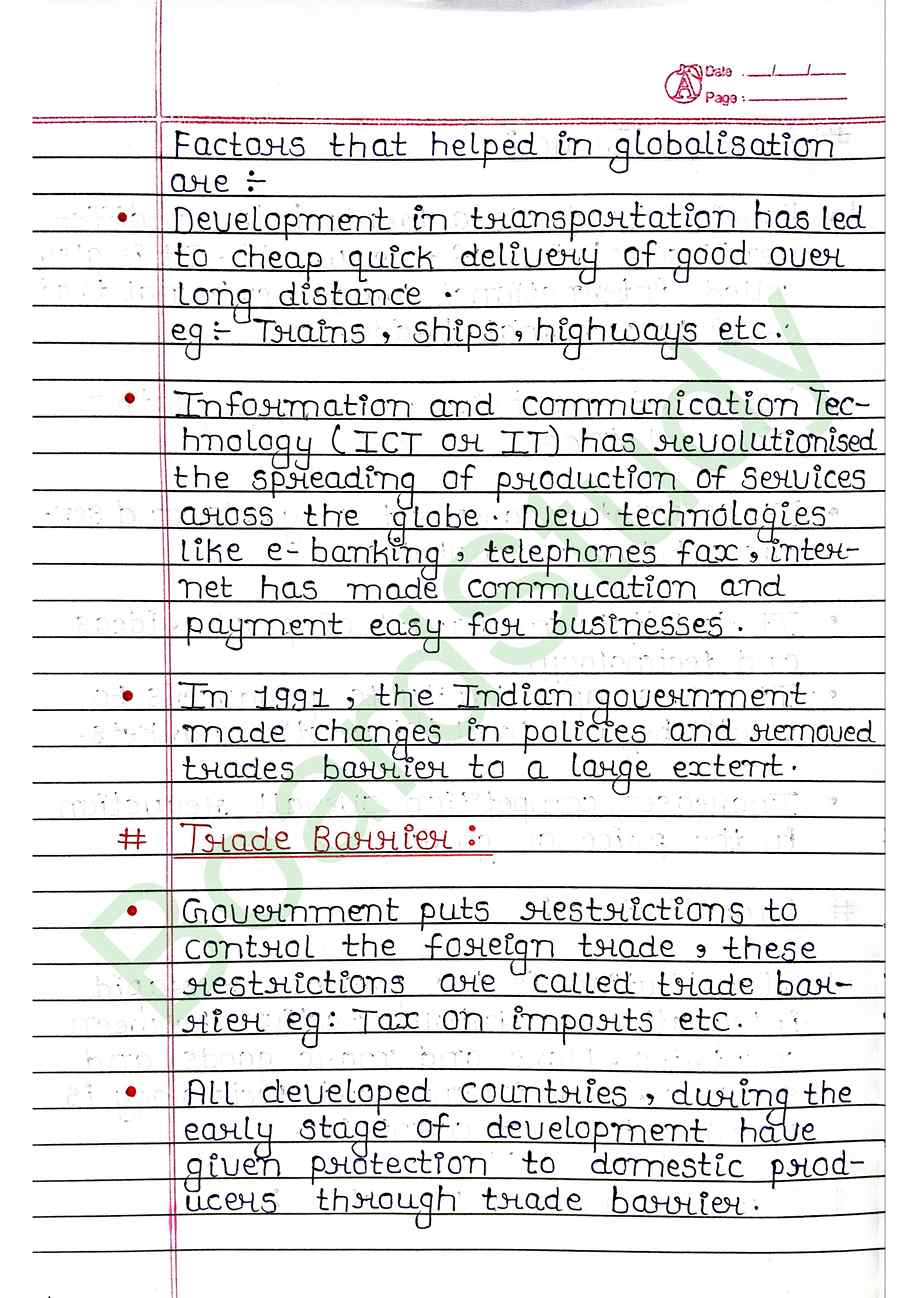 Date : __/__/__
Page :
Factors that helped in globalisation
are :-
• Development in transportation has led
to cheap quick delivery of good over
long distance .
eg :- Trains , ships , highways etc .
• Information and communication Tec-
hnology ( ICT or IT) has revolutionised
the spreading of production of services
aross the globe . New technologies
like e-banking , telephones fax , inter-
net has made commucation and
payment easy for businesses .
• In 1991 , the Indian government
made changes in policies and removed
trades barrier to a large extent .
# Trade Barrier :
• Government puts restrictions to
control the foreign trade , these
restrictions are called trade bar-
rier eg: Tax on imports etc .
• All developed countries , during the
early stage of development have
given protection to domestic prod-
ucers through trade barrier .
BoardStudy